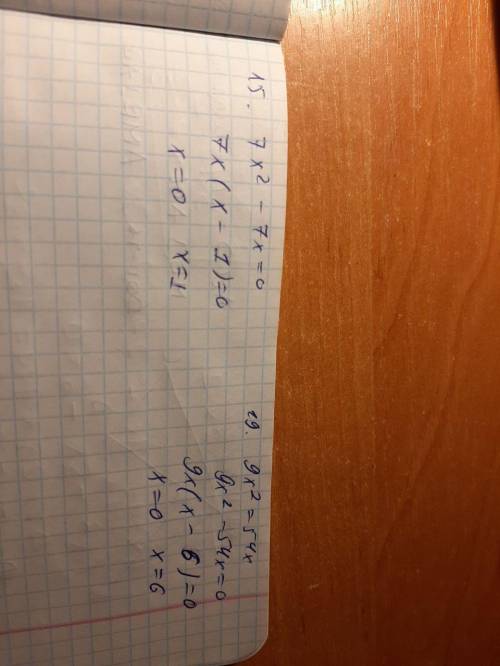 15. 7x² - 7x = 0
7x(x - 1) = 0
x = 0 x = 1
19. 9x² = 54x
9x² - 54x = 0
9x(x - 6) = 0
x = 0 x = 6